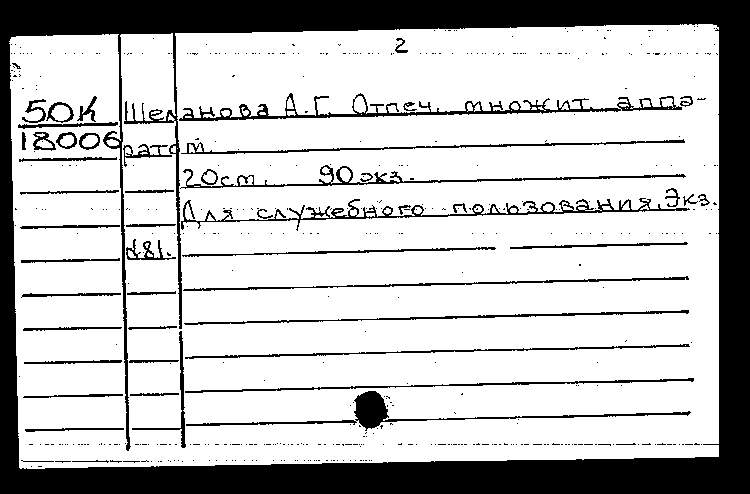 2
50К Шеланова А.Г. Отпеч. множит. аппа-
18006 ратом.
20см. 90экз.
Для служебного пользования. Экз.
№81.